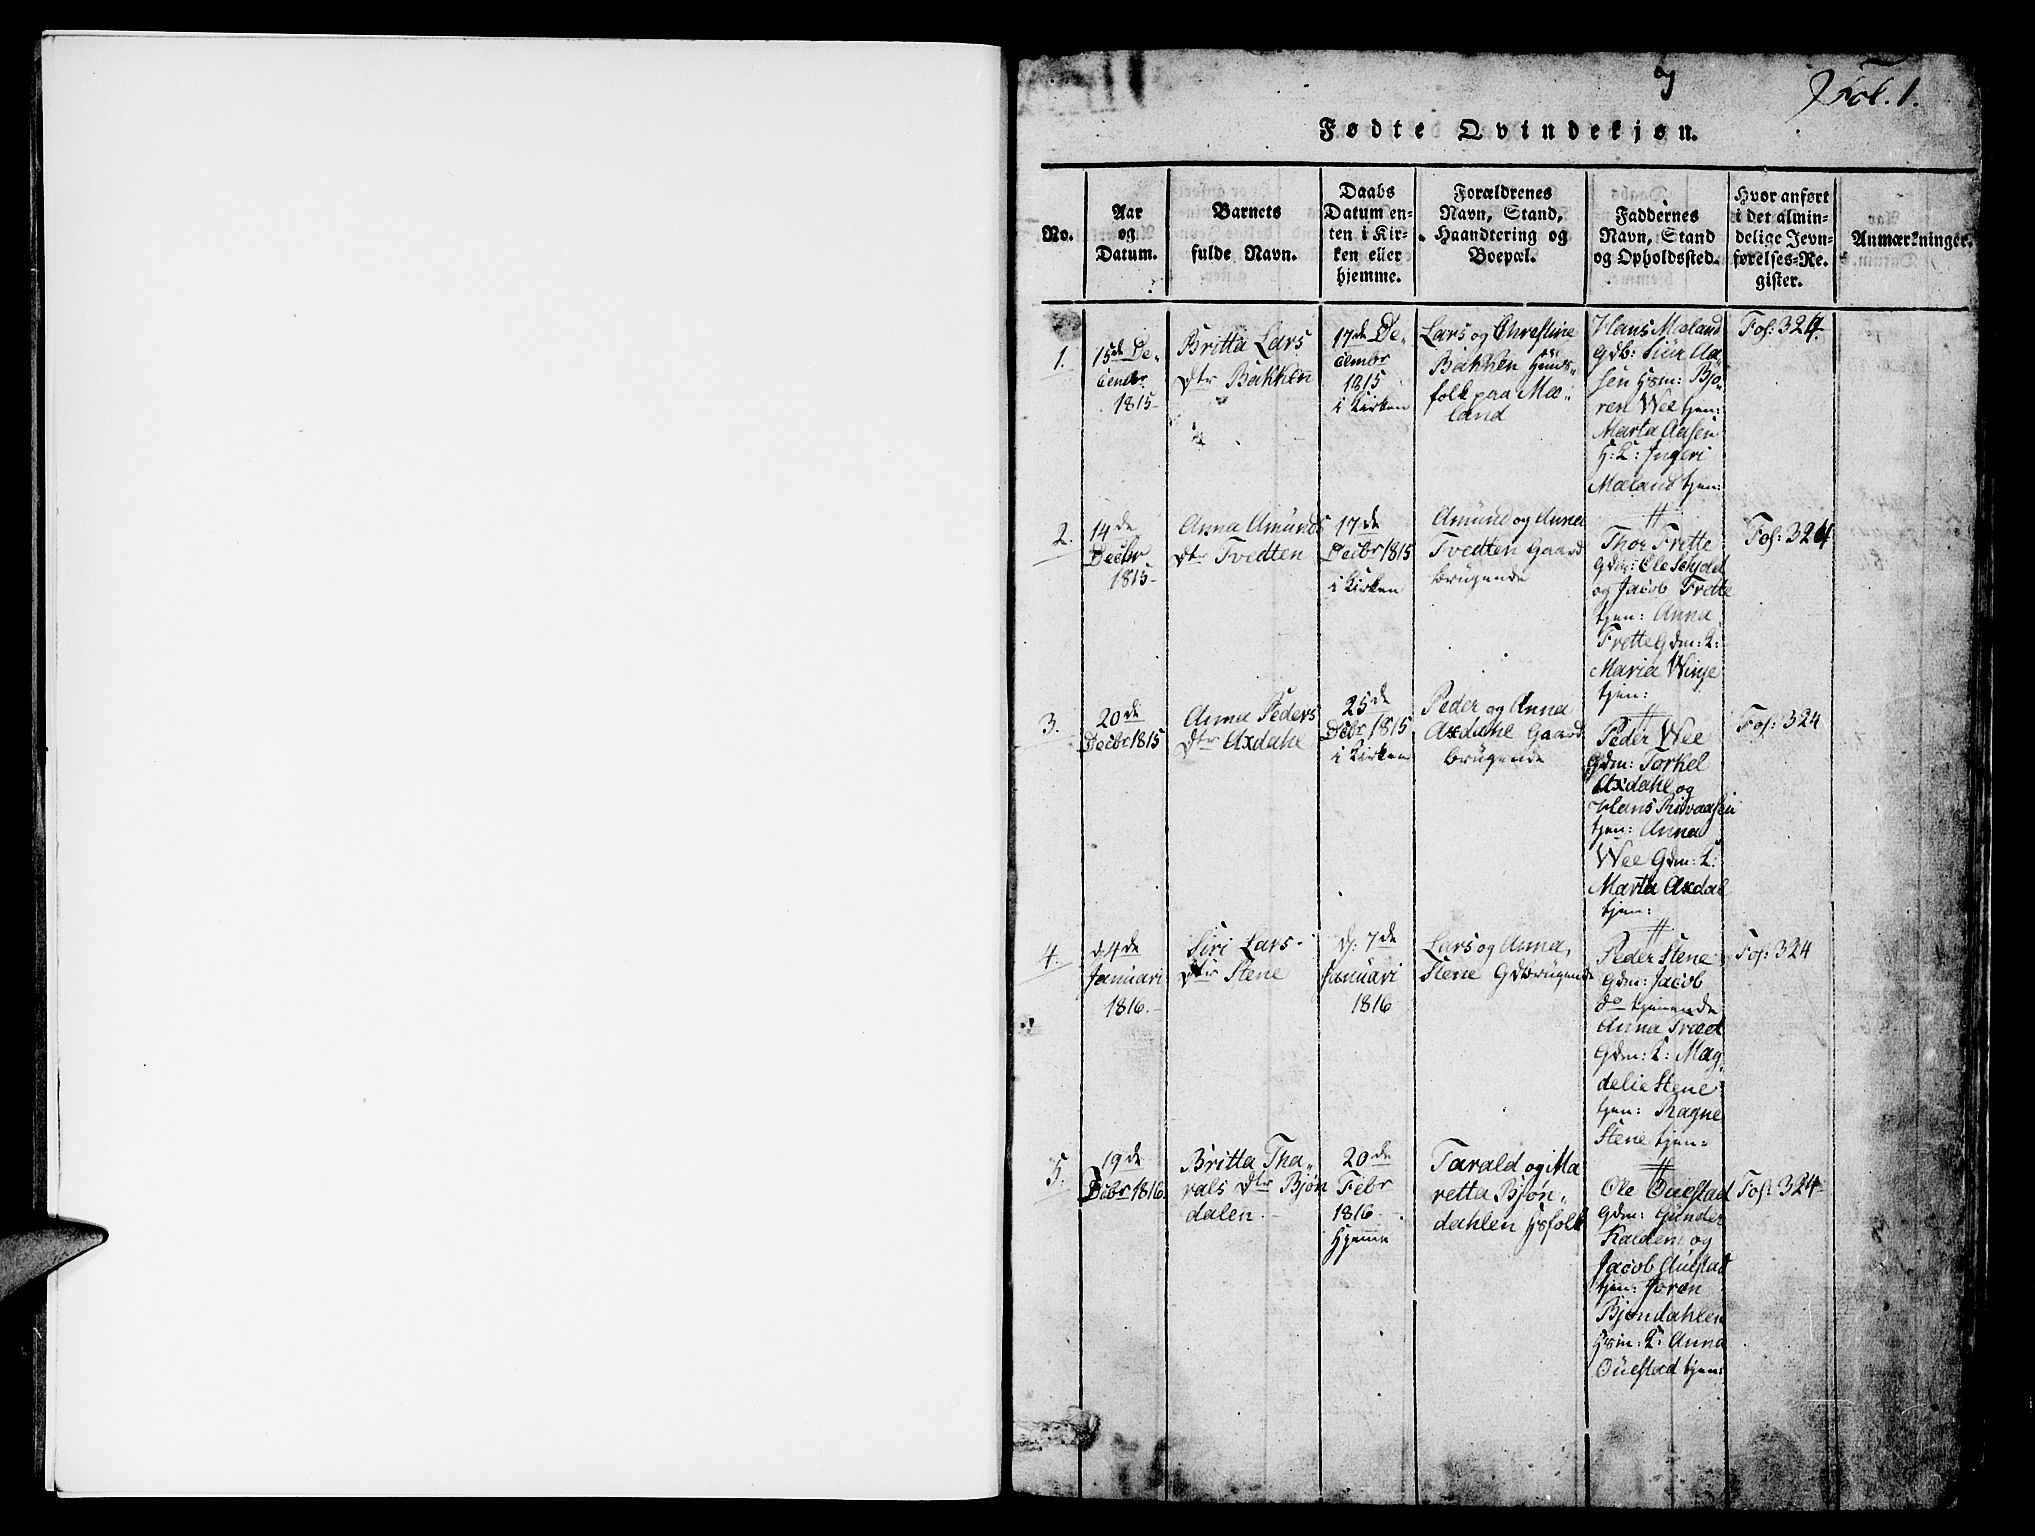 Fol. 1.
Fødte Qvindekjøn.
No.
Aar
og
Datum.
Barnets
fulde Navn.
Daabs
Datum en-
ten i Kir-
ken eller
hjemme.
Forældrenes
Navn, Stand,
Haandtering og
Boepæl.
Faddernes
Navn, Stand
og Opholdssted.
Hvor anført
i det almin-
delige Jevn-
førelses-Re-
gister.
Anmærkninger.
1.
15de De-
cember
1815
Britta Lars
Dtr Bakken
17de De-
cembr
1815
i Kirken
Lars og Christine
Bakken Huus-
folk paa Mæ-
land
Hans Mæland
Gdb: Siur Aa-
sen Hsm: Bjø-
ren Wee tjen:
Marta Aasen
H: K: Ingeri
Mæland tjen:
Fol: 324.
2.
14de
Decbr
1815
Anna Amunds
Dtr Tvedten
17de
Decbr 1815
i Kirken
Amund og Anna
Tvedten Gaard
brugende
Thor Frette
Gdm: Ole
og Jacob Frette
tjen: Anna
Frette Gdm: K:
Maria Winje
tjen:
Fol: 324
3.
20de
Decbr 1815
Anna Peders
Dtr Axdahl
25de
Decbr 1815
i Kirken
Peder og Anna
Axdahl Gaard
brugende
Peder Wee
Gdm: Torkel
Axdahl og
Hans
tjen: Anna
Wee Gdm: K:
Marta Axdal
tjen:
Fol: 324
4.
d 4de
Januari
1816
Siri Lars-
Dtr Stene
d: 7de
Januari
1816
Lars og Anna
Stene Gdbrugende
Peder Stene
Gdm: Jacob
do tjenende
Anna Træd
Gdm: K: Mag-
delie Stene
tjen: Ragne
Stene tjen:
Fol: 324
5.
19de
Febr 1816
Britta Tha-
rals Dtr Bjøn
dalen
20de
Febr
1816
Hjemme
Tarald og Ma
retta Bjøn-
dahlen Hsfolk
Ole Øuestad
Gdm: Gunder
Kalden og
Jacob Øuestad
tjen: Joren
Bjøndahlen
Hsm: K: Anna
Øuestad tjen:
Fol: 324